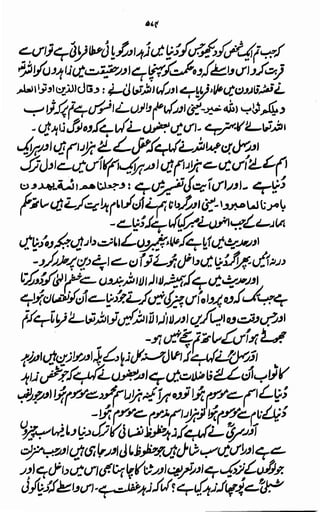 ۵۸۴
کہ جب تم ایک شخص کو دیکھو جس کو دنیا میں زہد اور گویائی عطا فرمائی ہے تو اس سے
قربت کرو اس واسطے کہ وہ حکمت کو پہنچا ہے اور حقیقت میں زاہدوں کو اللہ تعالیٰ
نے قصہ قارون میں علماء فرمایا ہے اور کہا اللہ تعالیٰ نے : وقال الذین اوتوا العلم
ویلکم ثواب اللہ خیر یعنی اور کہا علم والوں نے افسوس ہے تم پر کہ ثواب
اللہ تعالیٰ کا بہتر ہے ۔ اس میں بعضوں نے کہا ہے کہ وہ لوگ زاہد ہیں ۔
اور سہل بن عبداللہ نے کہا ہے کہ عقل کے لئے ہزار اسم ہیں اور ہر ایک
اسم کے لئے اُس میں سے ہزار اسم ہیں اور ہر ایک اسم کا اُس میں سے اول ترک
دنیا ہے ۔ اور اس آیت کی تفسیر میں ہے : وجعلنا ھم ائمة یھدون
بامرنا لما صبروا ۔ یعنی اور گردانا ہم نے اُن کو امام ہدایت کرتے ہیں ساتھ حکم
ہمارے کے جب انہوں نے صبر کیا کہا ہے کہ دنیا سے ۔
اور حدیث میں آیا ہے کہ علماء پیغمبروں کے امانت دار ہیں جبکہ وہ دنیا میں
در نہ آئیں پھر اگر دنیا میں داخل ہوئے تو اُن سے اپنے دین پر حذر کرو ۔
اور حدیث میں ہے کہ ہمیشہ لا الہ الا اللہ بندوں سے خشم الٰہی کو دور کرتا
ہے جب تک کہ وہ پرواہ اس چیز کی نہیں کرتے جو دنیا سے اُن کو نقصان ہوا ہے
اور جس وقت وہ ایسا کریں اور لا الہ الا اللہ کہیں تو اللہ تعالیٰ فرماتا ہے کہ تم
جھوٹے ہو اُس کے ساتھ تم سچے نہیں ہو ۔
اور سہل نے کہا ہے کہ اعمال حسنہ کل زہاد کے پلہ اور موازین ہیں اور زہد
کا ثواب اُن کے لئے فاضلات میں ہے اور بعضوں نے کہا ہے کہ جو شخص زاہد
دنیا کے اسم سے موسوم ہوا تو وہ ہر آئینہ ہزار اسم محمود سے موسوم ہوا اور جو راغب
دنیا کے نام سے موسوم ہوا تو ہزار اسم مذموم سے موسوم ہوا ۔
اور سری نے کہا ہے کہ زہد حظوظ نفسانی کا ترک دنیا و مافیہا سب چیزوں
سے ہے اور اس میں سب شامل ہیں جو حظوظ مالی اور جاہی ہیں اور حب منزلت
جو لوگوں کے نزدیک ہے اور تعریف اور ثنا کا چاہنا بھی اس میں داخل ہے اور
شبلی سے پوچھا کہ زہد کیا ہے ؟ کہا کہ زہد غفلت ہے ۔ اس واسطے کہ دنیا کوئی